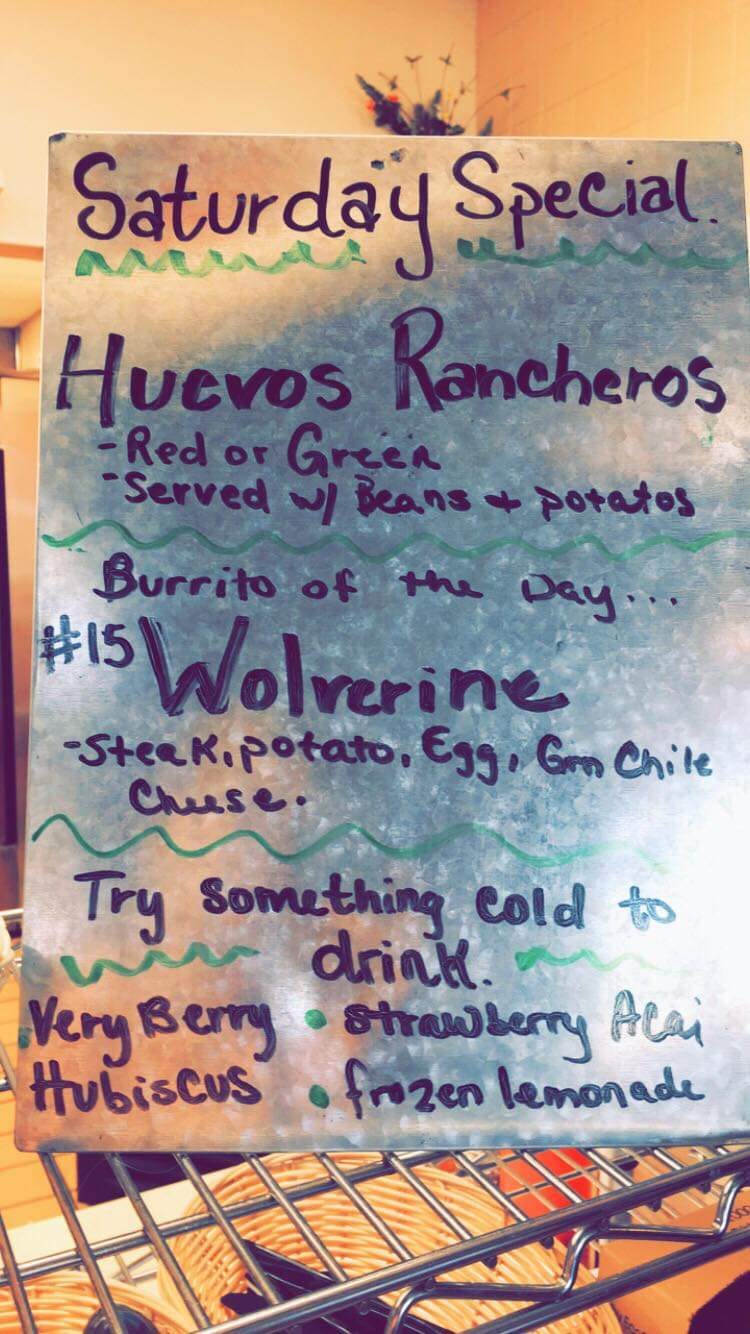 Saturday Special.
Huevos Rancheros
-Red or Green
-Served w/ Beans + potatos
Burrito of the Day...
#15 Wolverine
-Steak, potato, Egg, Grn Chile
Cheese.
Try Something Cold to
drink.
Very Berry • Strawberry Acai
Hubiscus • frozen lemonade